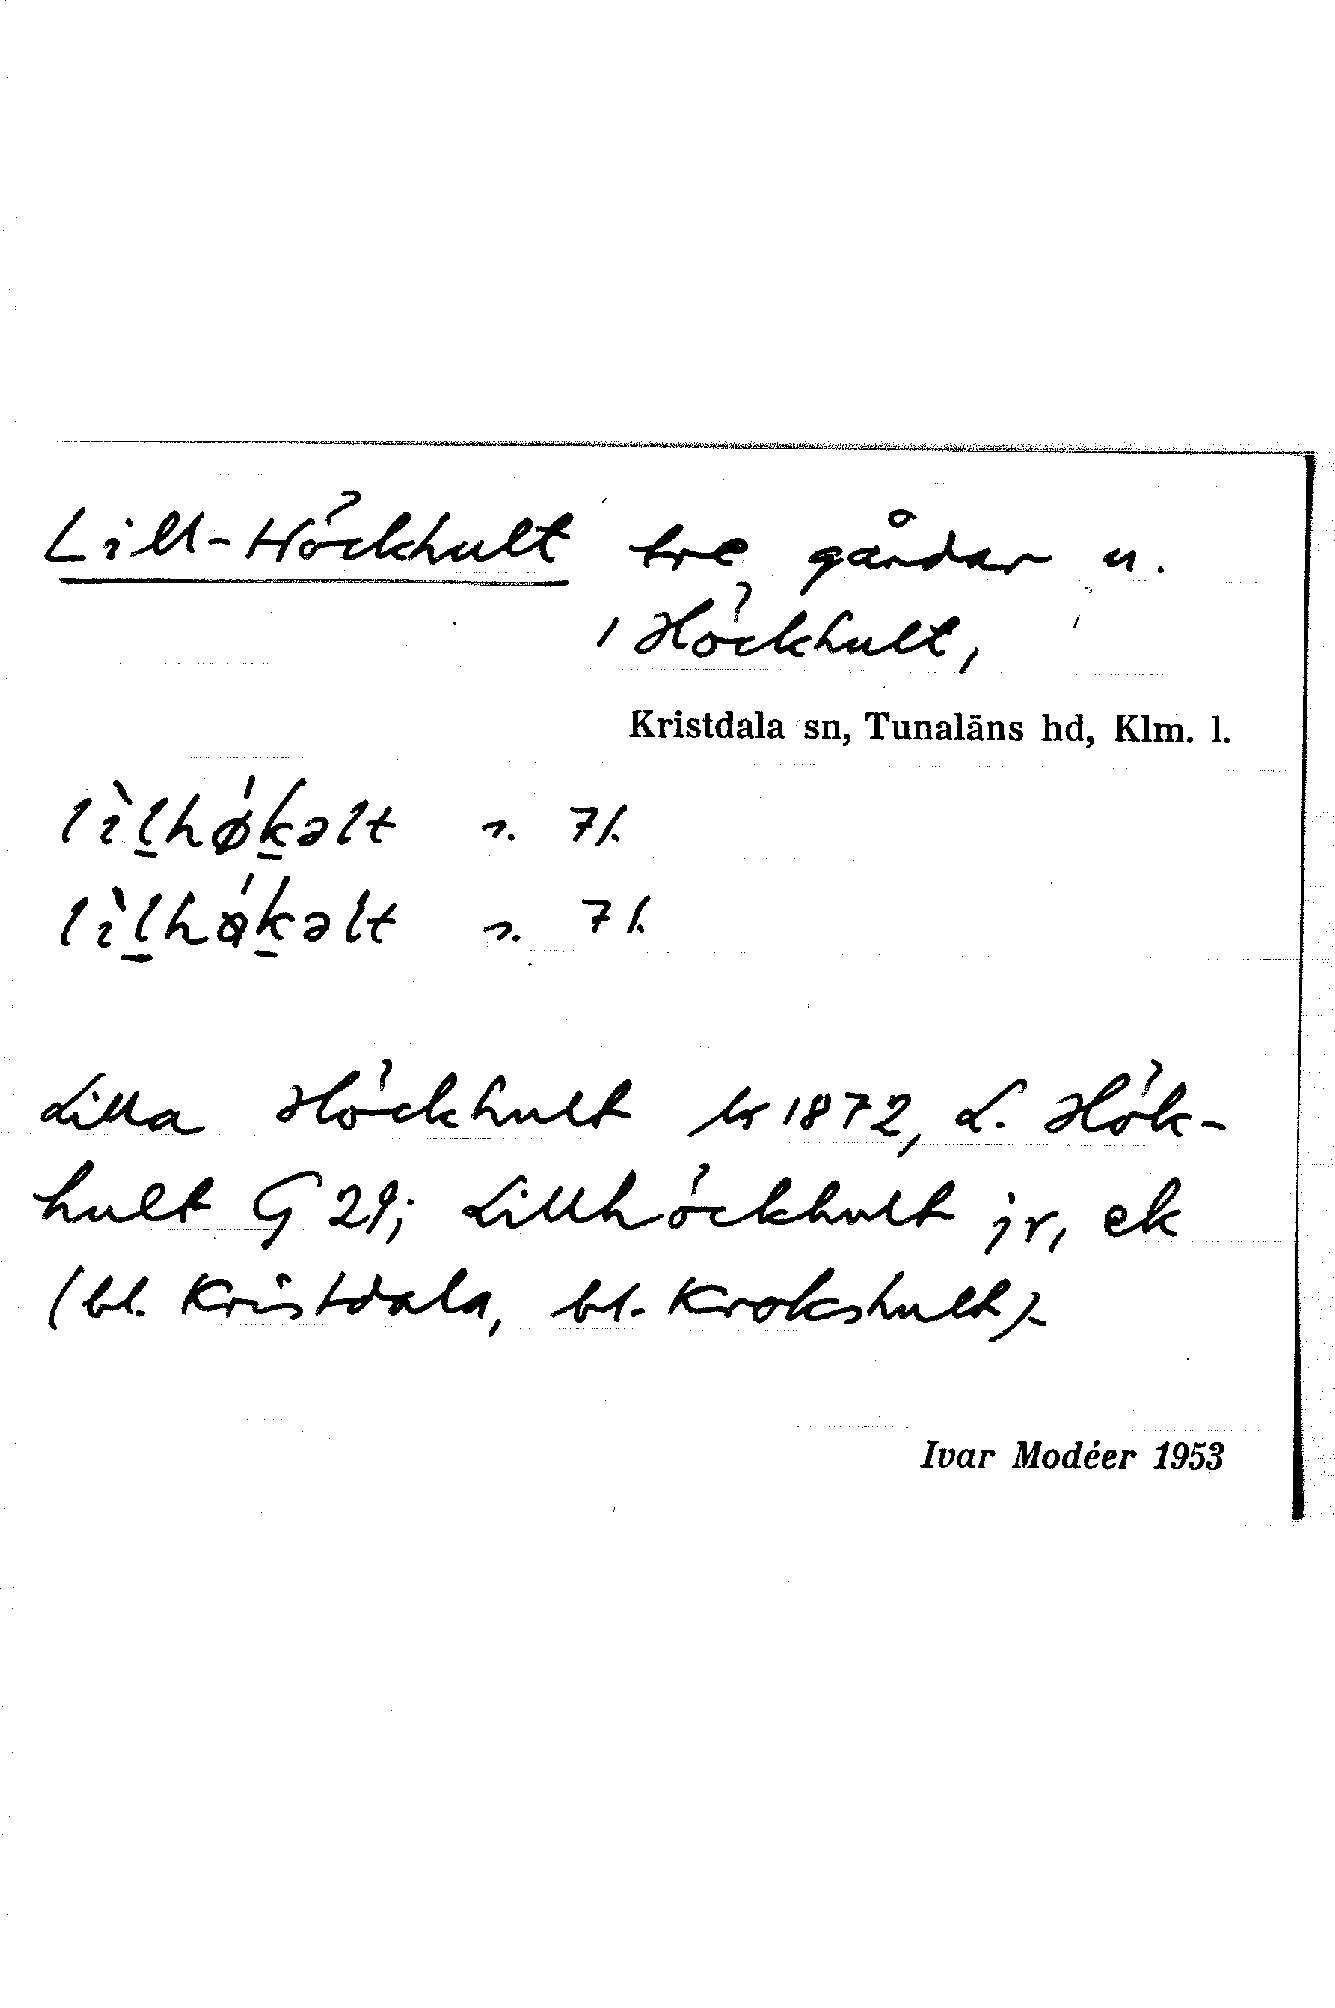 Lill-Höckhult tre gårdar u.
/ Höckhult,
Kristdala sn, Tunaläns hd, Klm. l.
lìl̠hǿk̠əlt n. 7/.
lìl̠hǫ́k̠əlt n. 7/.
Lilla Höckhult Jr 1872, L. Hök-
hult G 29; Lillhöckhult jr, ek
(bl. Kristdala, bl. Krokshult).
Ivar Modéer 1953